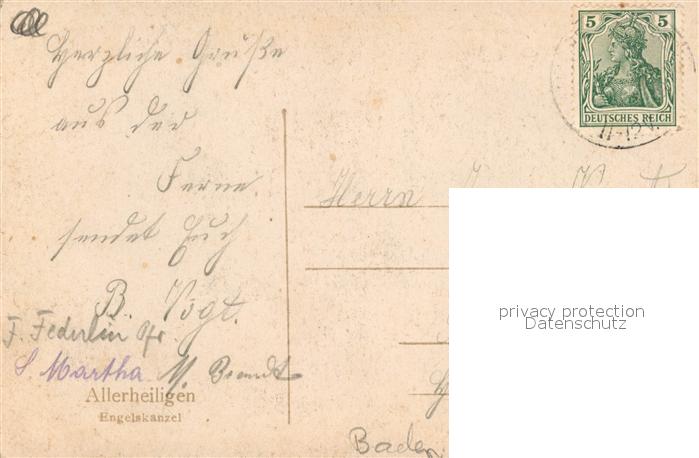 5 5
DEUTSCHES REICH
11-12V.
Herzliche Grüße
aus der
Ferne
sendet Euch
B. Vogt.
F. Federlin
S. Martha M. Brandt
Allerheiligen
Engelskanzel
Herrn
Baden
privacy protection
Datenschutz